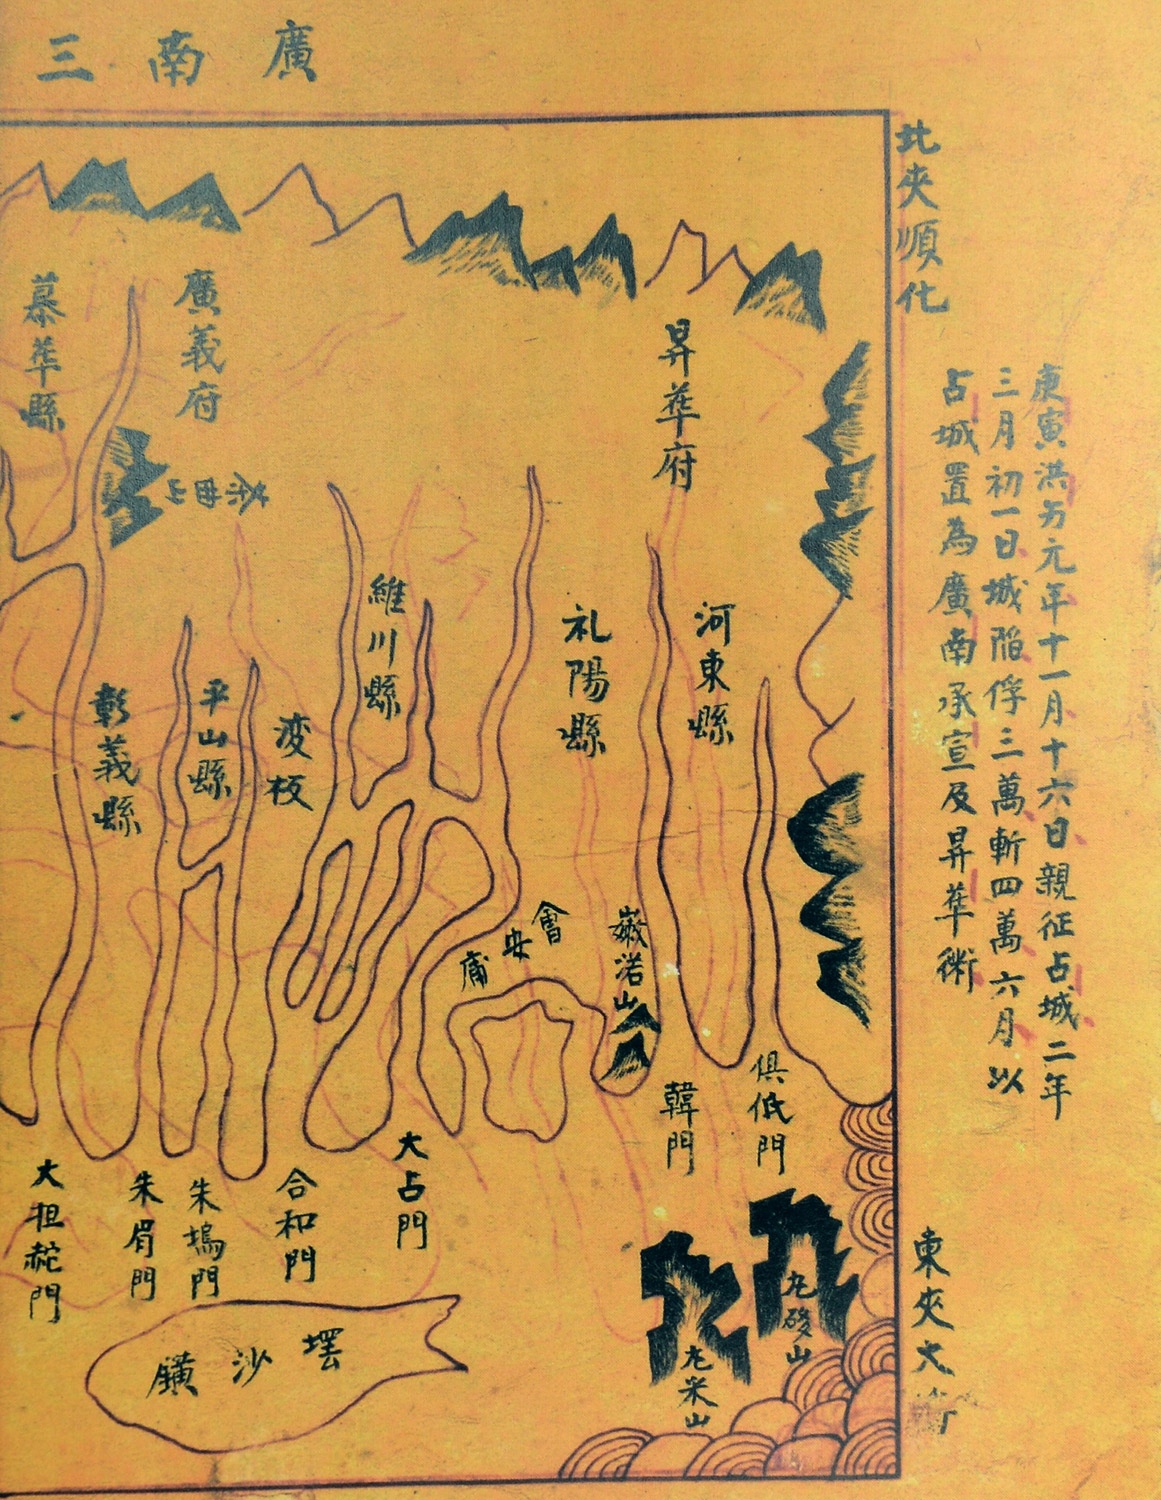 廣南三
北夾順化
庚寅洪方元年十一月十六日親征占城二年
三月初一日城陷俘三萬斬四萬六月以
占城置為廣南承宣及昇華術
東夾大
昇華府
廣義府
慕華縣
河東縣
礼陽縣
維川縣
平山縣
彰義縣
会安
山
韓門
俱低門
大占門
合和門
朱塢門
朱眉門
大担𦨭門
山
山
鐄沙